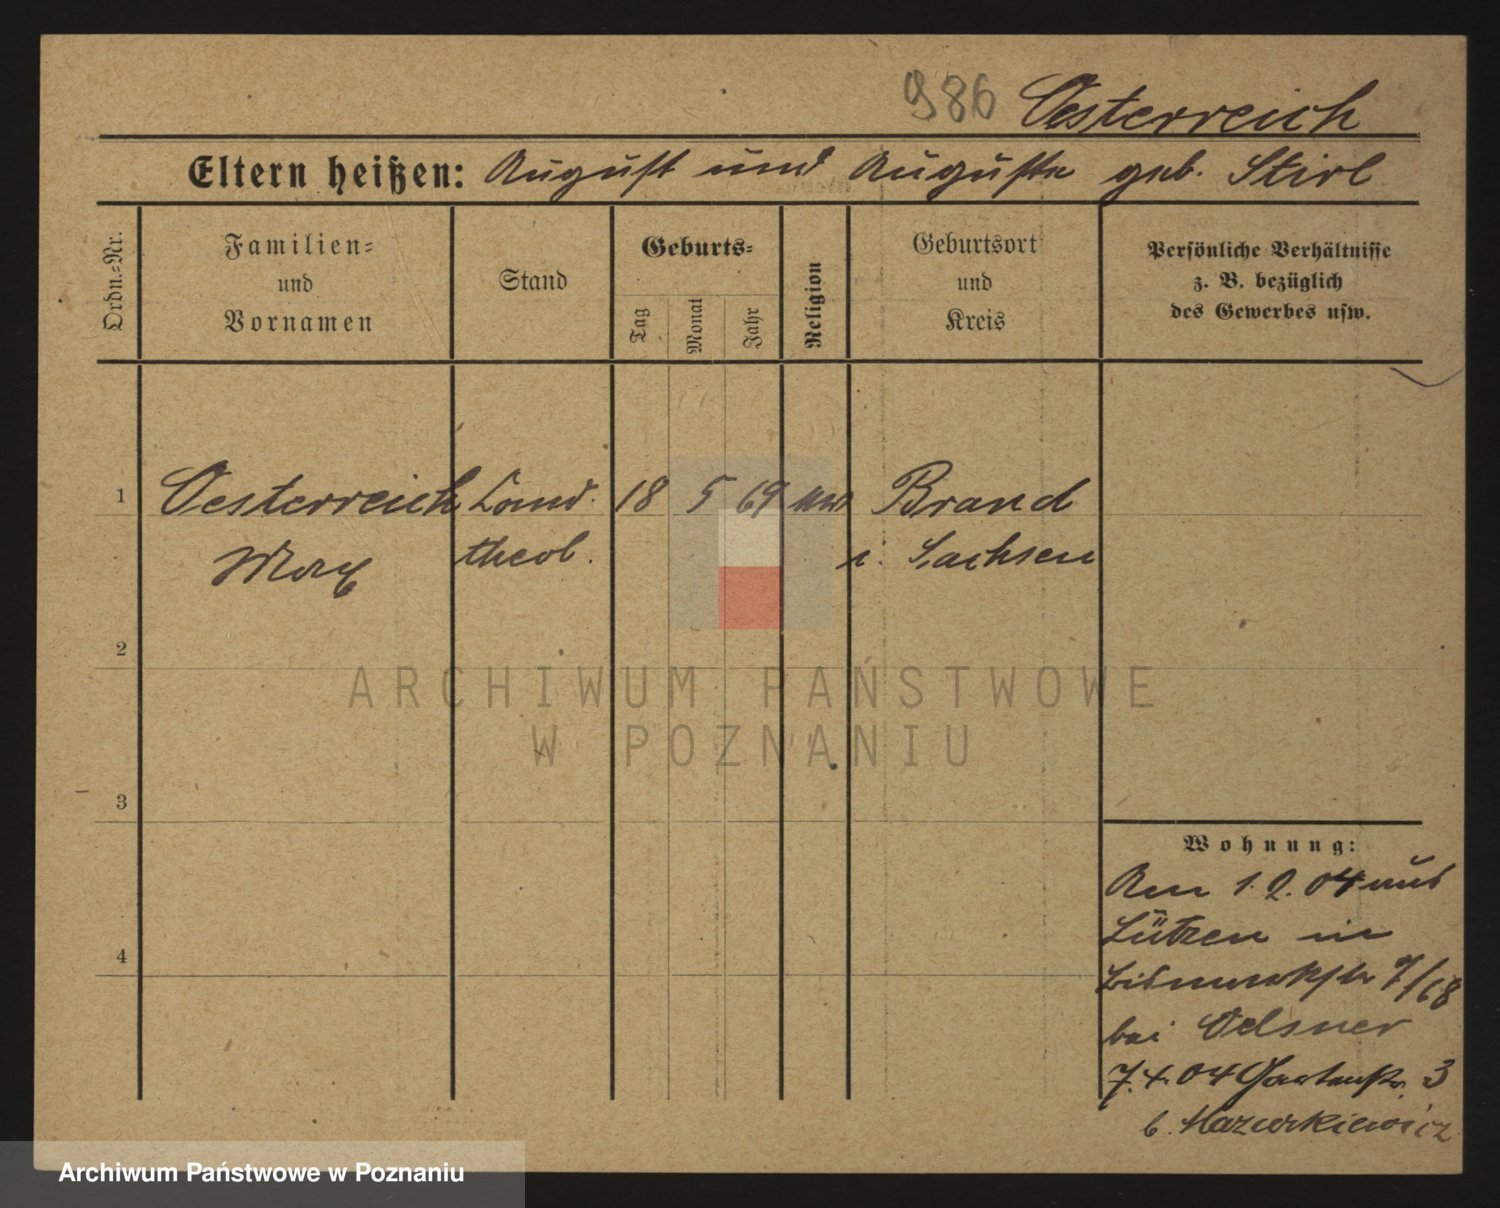 986 Oesterreich
Eltern heißen: August und Auguste geb. Stirl
Ordn.=Nr.
Familien=
und
Vornamen
Stand
Geburts=
Tag
Monat
Jahr
Religion
Geburtsort
und
Kreis
Persönliche Verhältnisse
z. B. bezüglich
des Gewerbes usw.
1 Oesterreich Cand. 18 5 69 Brand
Max theol. i. Sachsen
2
3
4
Wohnung:
Am 1.2.04 aus
Lützen in
Bismarckstr 7/68
bei Oelsner
7.4.04 Gartenstr. 3
b. Mazurkiewicz
ARCHIWUM PAŃSTWOWE
W POZNANIU
Archiwum Państwowe w Poznaniu